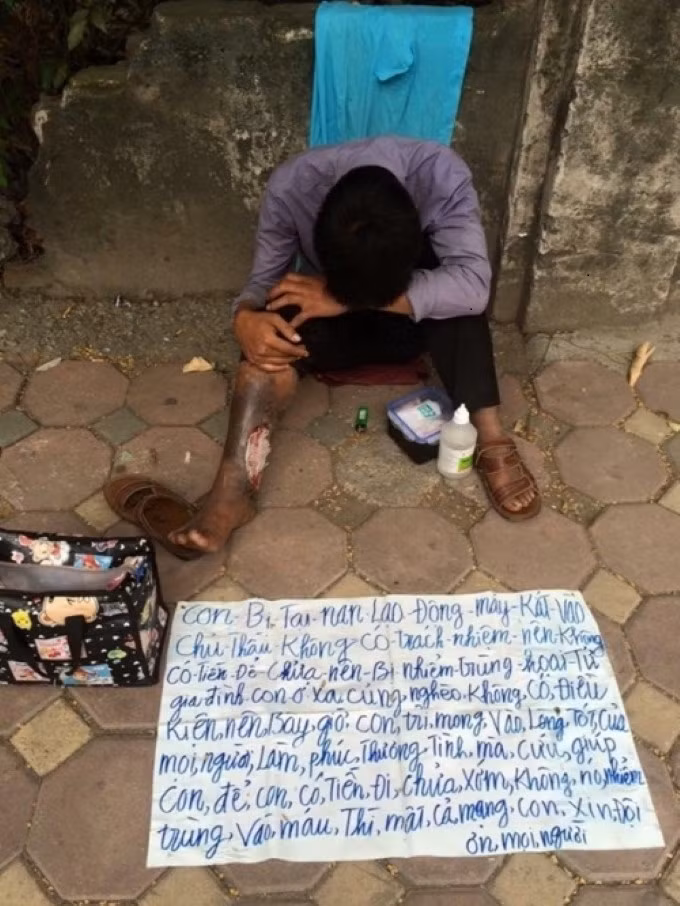 Con-Bị-Tai-nạn-Lao-Động-máy-Kát-Vào
Chủ-Thầu-Không-Có-trách-nhiệm-nên-Không
Có-tiền-Để-Chữa-nên-Bị-nhiễm-trùng-hoại-Tử
gia đình con ở xa cũng nghèo. Không, Có, Điều
Kiện, nên, Bây, giờ, con, trỉ, mong, Vào, Lòng, Tốt, Của
mọi, người, Làm, phúc, Thương, Tình, mà, cứu, giúp
Con, để, con, có, Tiền, Đi, chửa, Xớm, Không, nó, nhiễm
trùng, Vào, máu, Thì, mất, cả, mạng, con, Xin, Đội
ơn, mọi, người